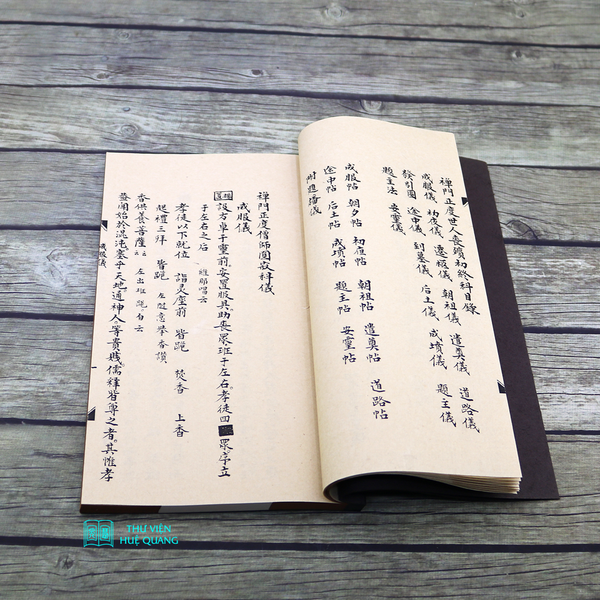 禪門正度世人喪儀初終科目錄
成服儀 初虞儀 遷柩儀 朝祖儀 遣奠儀 道路儀
發引圖 途中儀 到墓儀 后土儀 成墳儀 題主儀
題主法 安靈儀
成服帖 朝夕帖 初虞帖 朝祖帖 遣奠帖 道路帖
途中帖 后土帖 成墳帖 題主帖 安靈帖
禪門正度僧師圓寂科儀
成服儀
設方卓于靈前安置服具助喪眾班于左右孝徒四眾序立
于左右之后 維那唱云
孝徒以下就位 詣灵座前 皆跪 焚香 上香
起禮三拜 皆跪 左隨意舉香讚
香供養菩薩 左出班跪白云
蓋聞始於混沌塞乎天地通神人等貴賤儒釋皆尊之者其惟孝
成服儀
THƯ VIỆN
HUỆ QUANG